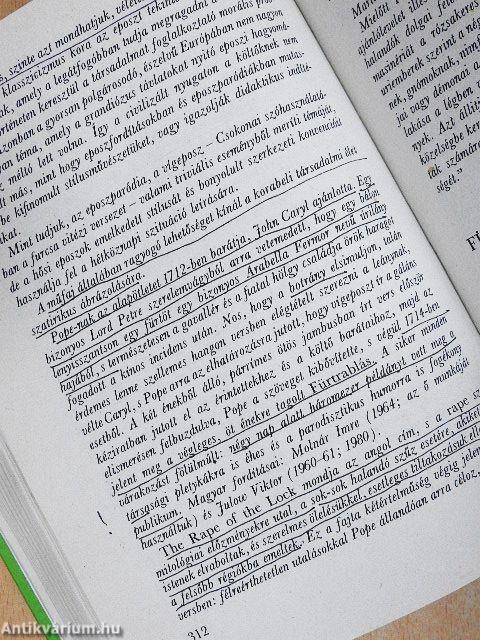 s, szinte azt mondhatjuk, vélet
klasszicizmus kora az eposzt tekint
ak, amely a legátfogóbban tudja megragadni a
történeten keresztül a társadalmat foglalkoztató morális prob
azonban a gyorsan polgárosodó, észelvű Európában nem nagyon
an téma, amely a grandiózus távlatokat nyitó eposzi hagyomá-
z méltó lett volna. Így a civilizált nyugaton a költőknek nem
lt más, mint hogy eposzfordításokban és eposzparódiákban mutas-
be kifinomult stílusművészetüket, vagy igazolják didaktikus indíté-
kaikat.
Mint tudjuk, az eposzparódia, a vígeposz – Csokonai szóhasználatá-
ban a furcsa vitézi versezet – valami triviális eseményből meríti témáját,
de a hősi eposzok emelkedett stílusát és bonyolult szerkezeti konvencióit
használja fel a hétköznapi szituáció leírására.
A műfaj általában ragyogó lehetőséget kínál a korabeli társadalmi élet
szatirikus ábrázolására.
Pope-nak az alapötletet 1712-ben barátja, John Caryl ajánlotta. Egy
bizonyos Lord Petre szerelemvágyból arra vetemedett, hogy egy bálon
lenyisszantson egy fürtöt egy bizonyos Arabella Fermor nevű úrilány
hajából, s természetesen a gavallér és a fiatal hölgy családja örök haragot
fogadott a kínos incidens után. Nos, hogy a botrány elsimuljon, talán
érdemes lenne szellemes hangon versben elégtételt szerezni a leánynak,
vélte Caryl, s Pope arra az elhatározásra jutott, hogy vígeposzt ír a gáláns
esetből. A két énekből álló, párrímes ötös jambusban írt vers először
kéziratban jutott el az érintettekhez és a költő barátaihoz, majd az
elismerésen felbuzdulva, Pope a szöveget kibővítette, s végül 1714-ben
jelent meg a végleges, öt énekre tagolt Fürtrablás. A siker minden
várakozást fölülmúlt: négy nap alatt háromezer példányt vett meg a
társasági pletykákra is éhes és a parodisztikus humorra is fogékony
publikum. Magyar fordításai: Molnár Imre (1964; az ő munkáját
használtuk) és Julow Viktor (1960–61; 1980).
The Rape of the Lock mondja az angol cím, s a rape sz
mitológiai előzményekre utal, a sok-sok halandó szűz esetére, akiket
istenek elraboltak, és szerelmes ölelésükkel, esetleges tiltakozásuk elle
a felsőbb régiókba emeltek. Ez a fajta kétértelműség végig jelen
versben: félreérthetetlen utalásokkal Pope állandóan arra céloz,
312
Mielőtt
ajándoklevelet ill
halandók dolgai felő
masinériát a rózsakeres
uriemberek szerint a nég
nek, gnómoknak, nimf
jai vagy démonai a
lakása a légben v
nyek. Azt állít
közelségbe ke
nak számára
ségét."
Antikvárium.hu